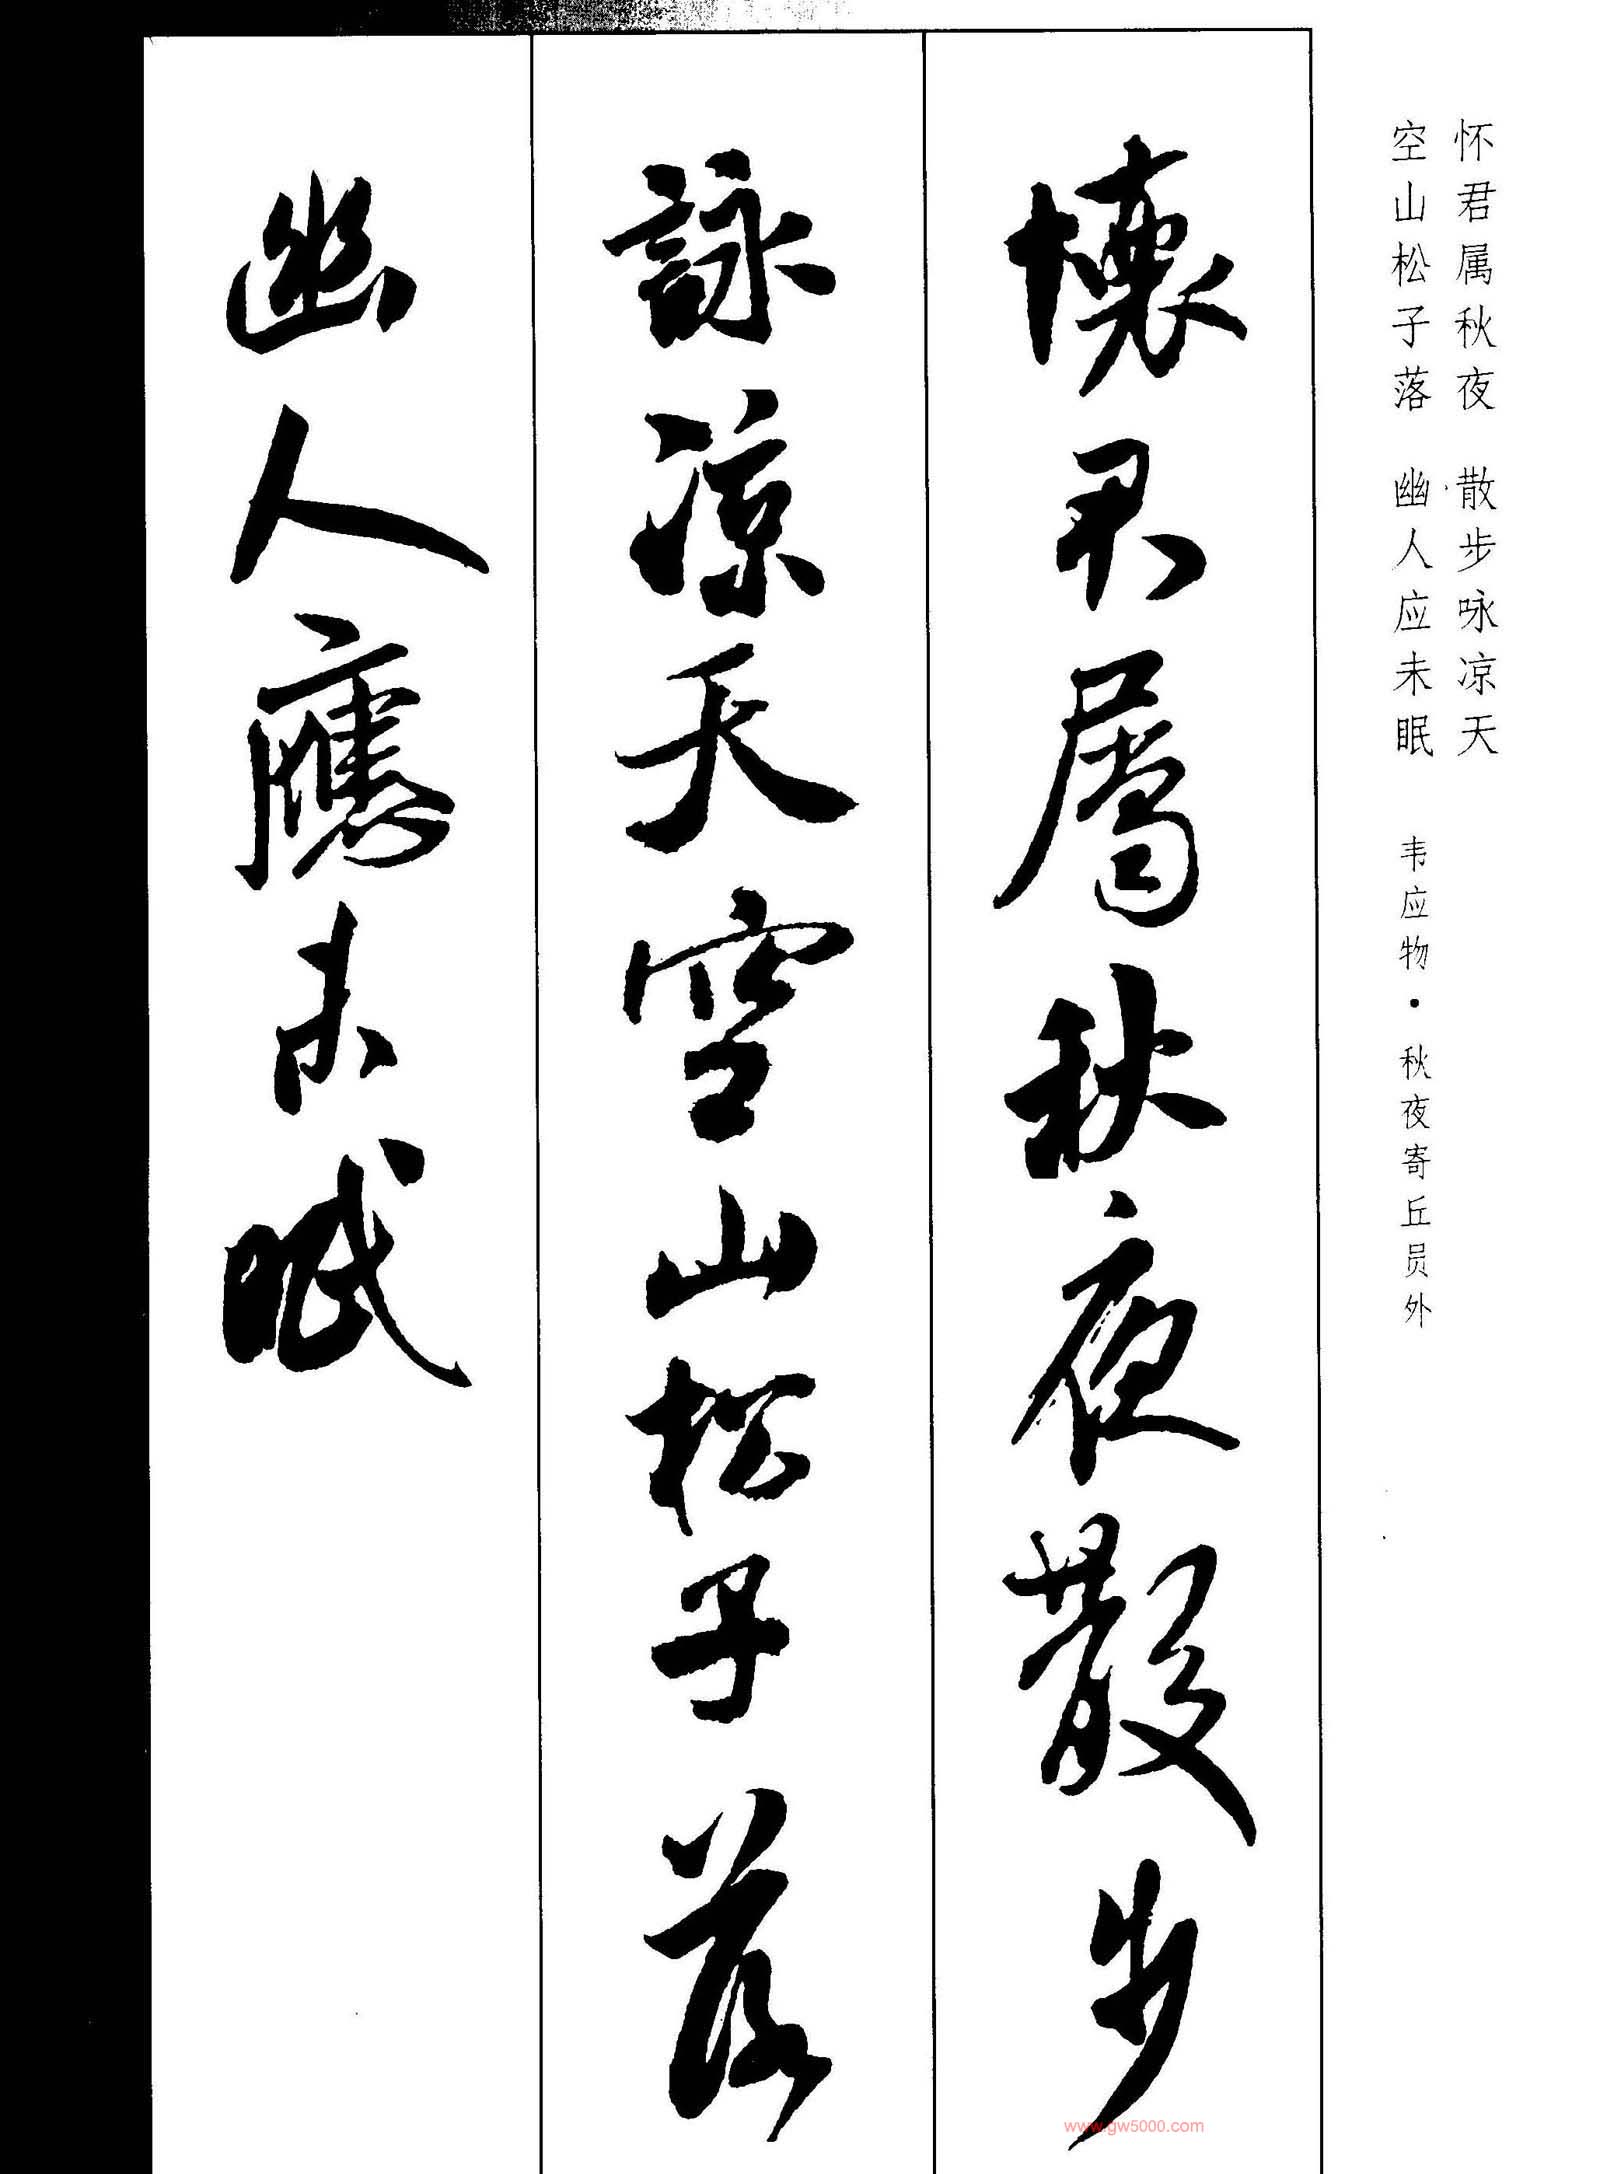 怀君属秋夜 散步咏凉天
空山松子落 幽人应未眠 韦应物·秋夜寄丘员外
懷君屬秋夜散步
詠涼天空山松子落
幽人應未眠
www.gw5000.com